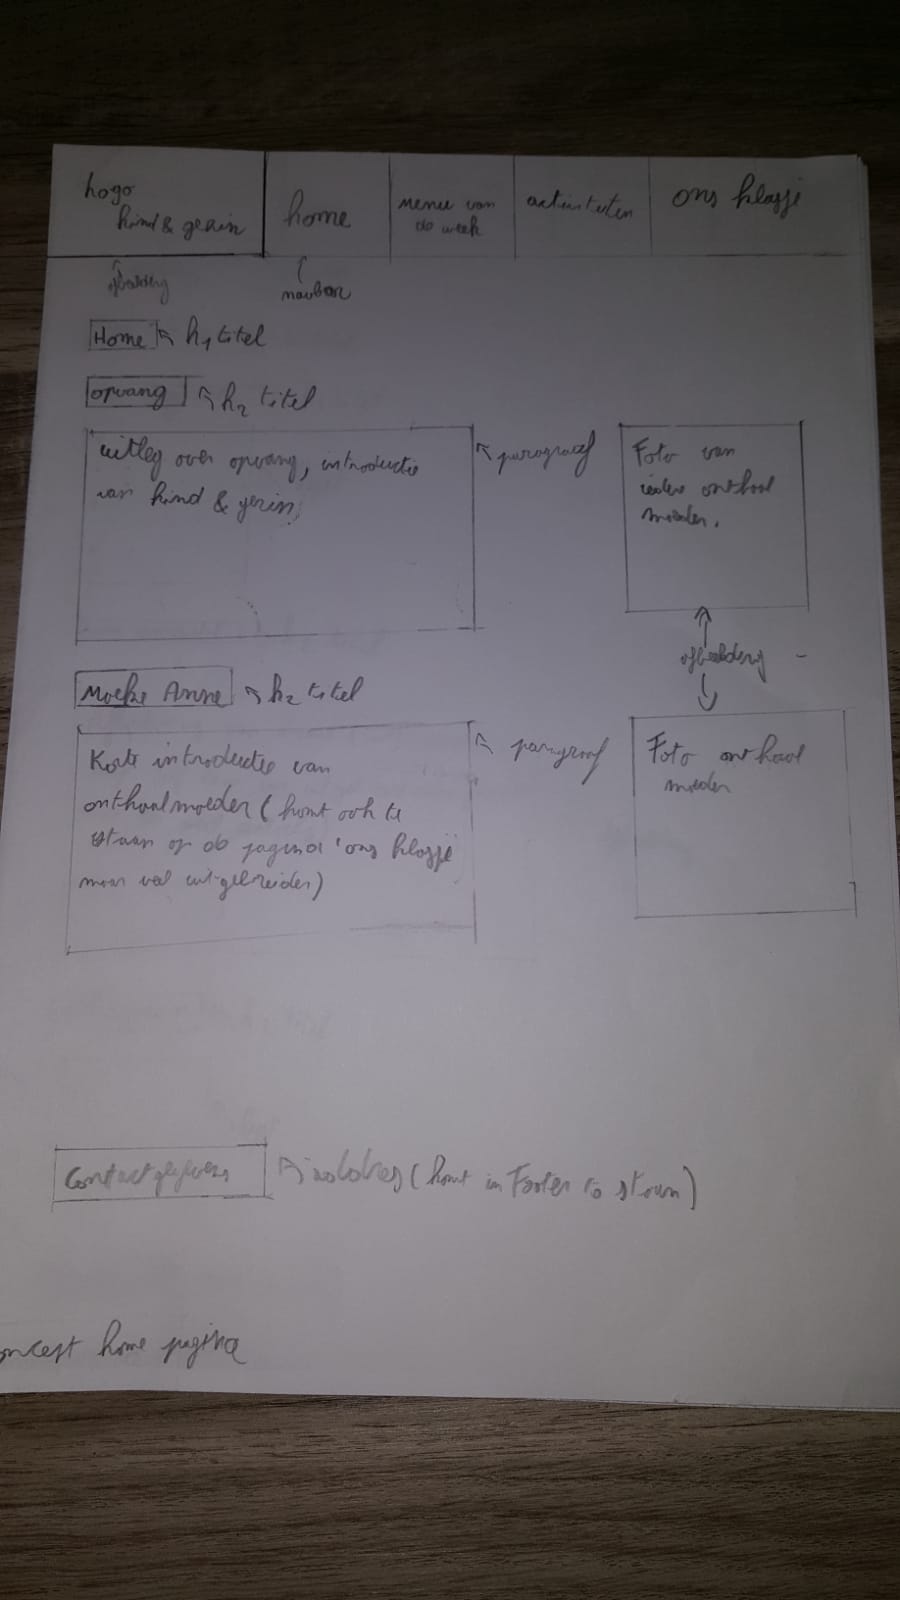 logo
kind & gezin
home
menu van
de week
activiteiten
ons klasje
afbeelding
navbar
Home h1 titel
opvang h2 titel
uitleg over opvang, introductie
van kind & gezin,
paragraaf
Foto van
iedere onthaal
moeder.
afbeelding
Moeke Anne h2 titel
Korte introductie van
onthaalmoeder (komt ook te
staan op de pagina 'ons klasje'
maar veel uitgebreider)
paragraaf
Foto onthaal
moeder
Contactgegevens (komt in Footer te staan)
oncept home pagina